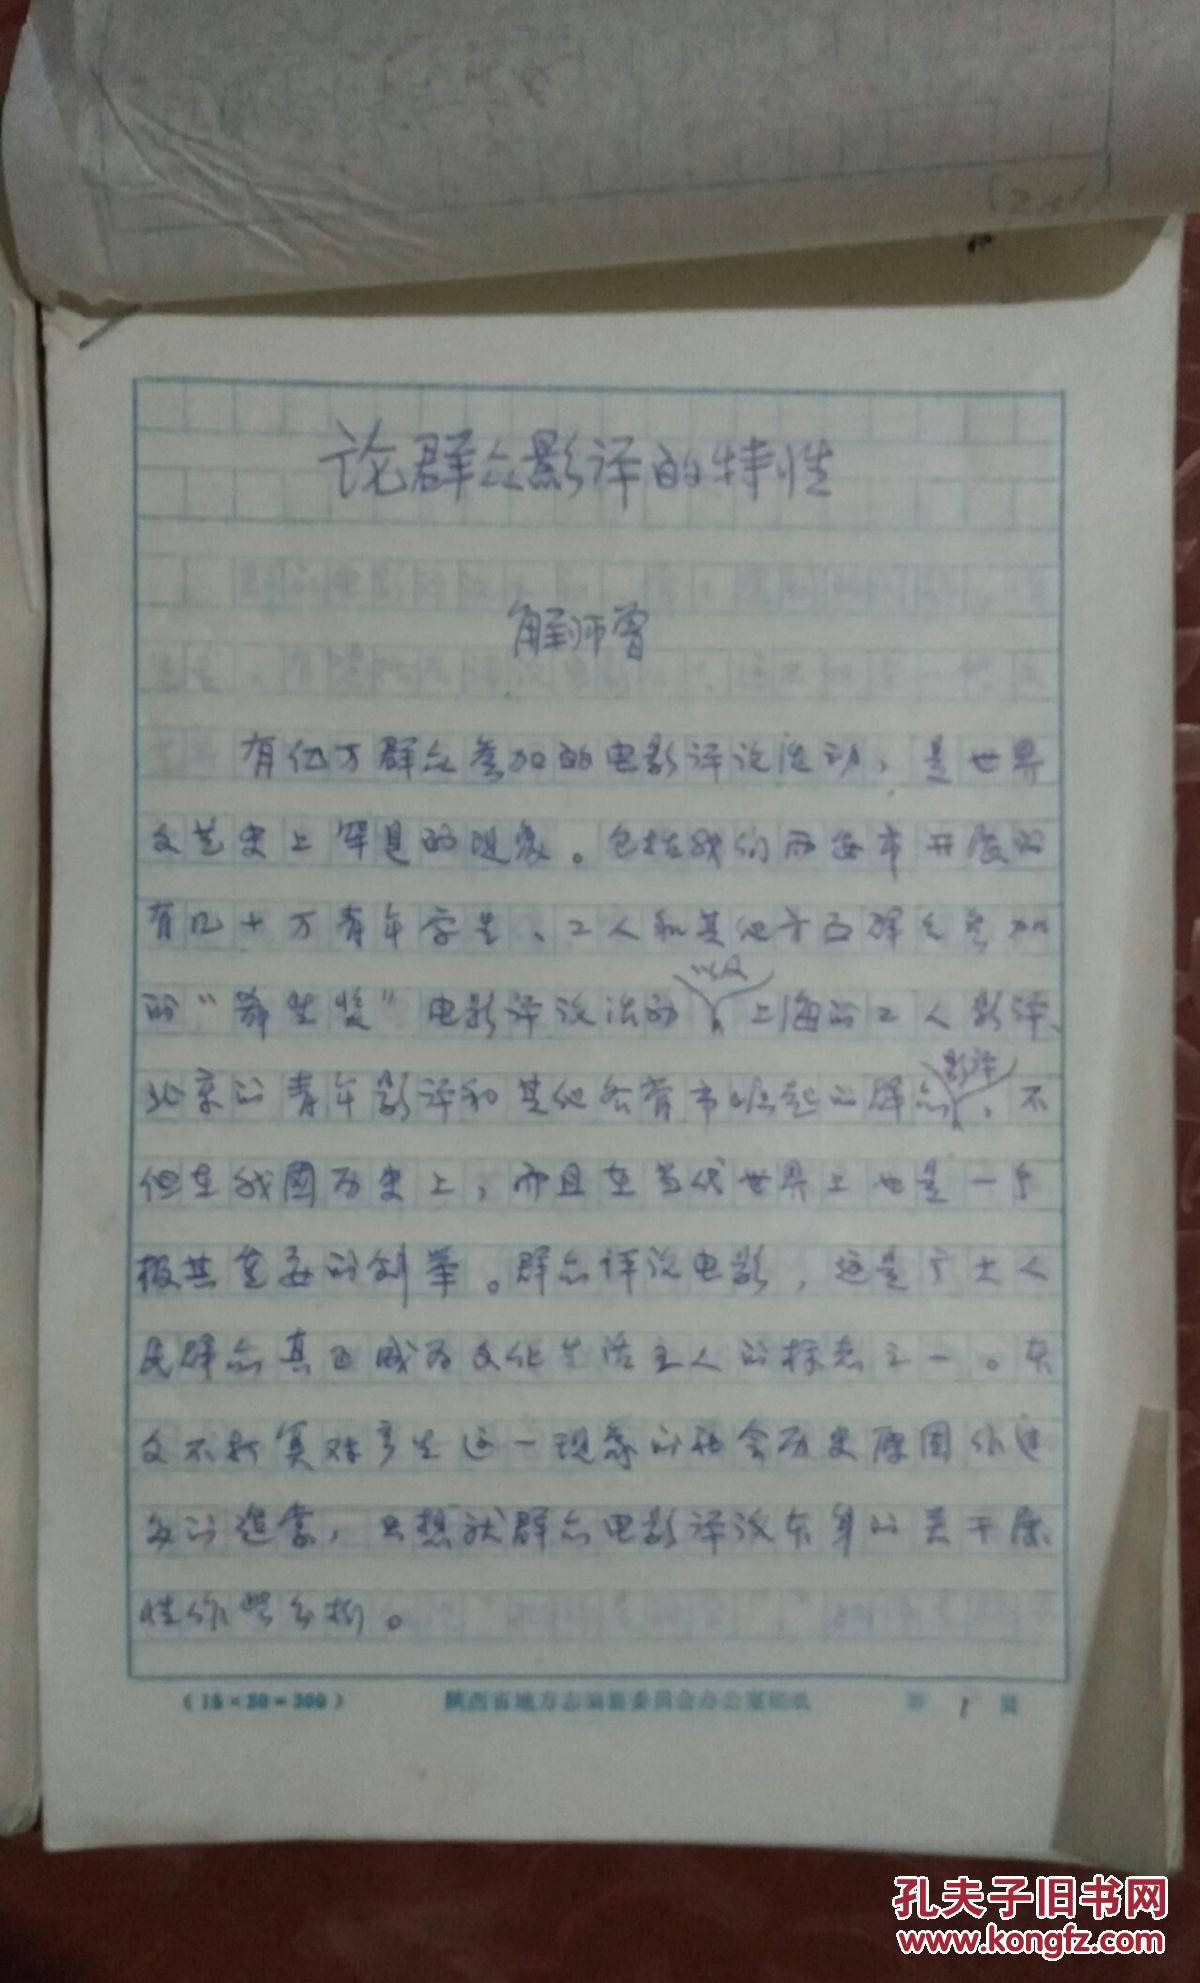 论群众影评的特性
解师曾
有亿万群众参加的电影评论活动,是世界
文艺史上罕见的现象。包括我们西安市开展的
有几十万青年学生、工人和其他方面群众参加
的“ 奖”电影评论活动以及上海的工人影评、
北京的青年影评和其他各省市崛起的群众影评,不
但在我国历史上,而且在当代世界上也是一个
极其重要的创举。群众评论电影,这是广大人
民群众真正成为文化生活主人的标志之一。本
文不打算对产生这一现象的社会历史原因作过
多的探索,只想就群众电影评论本身的若干属
性作些分析。
(15×20=300) 陕西省地方志编纂委员会办公室稿纸 第 1 页
孔夫子旧书网
www.kongfz.com